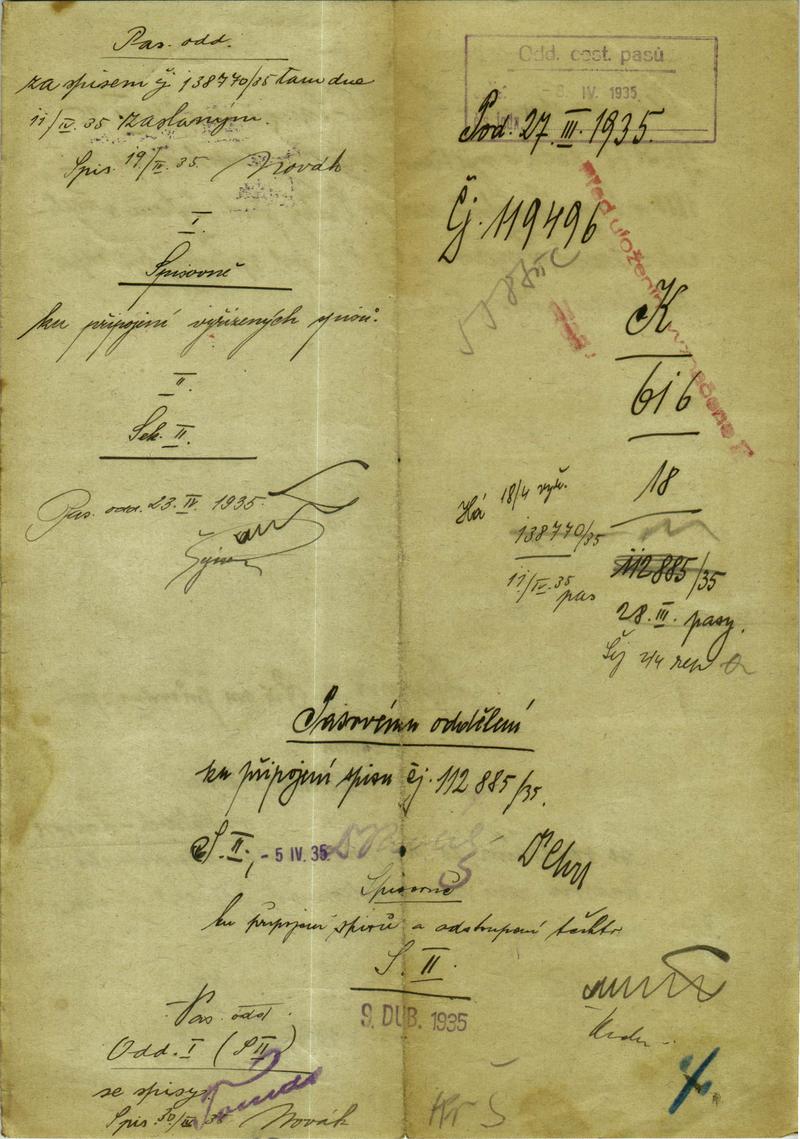 Pas. odd.
za spisem čj 138770/35 tam dne
11/IV. 35 zaslaným.
Spis. 19/IV. 35. Novák
I.
Spisovně
ku připojení vyřízených spisů.
II.
Sek. II.
Pas. odd. 23. IV. 1935.
Odd. cest. pasů
IV. 1935
Pod. 27. III. 1935.
Čj. 119496
před uložením
K
616
18
Há 18/4 vyř.
138770/35
11/IV. 35
pas
112885/35
28. III. pasy.
2/4 rep
Pasovému oddělení
ku připojení spisu čj. 112885/35.
S. II., - 5 IV. 35.
Spisovně
ku připojení spisů a odstoupení těchto
S. II.
9. DUB. 1935
Pas. odd.
Odd. I (S II)
se spisy
Spis. 30/IV 35 Novák